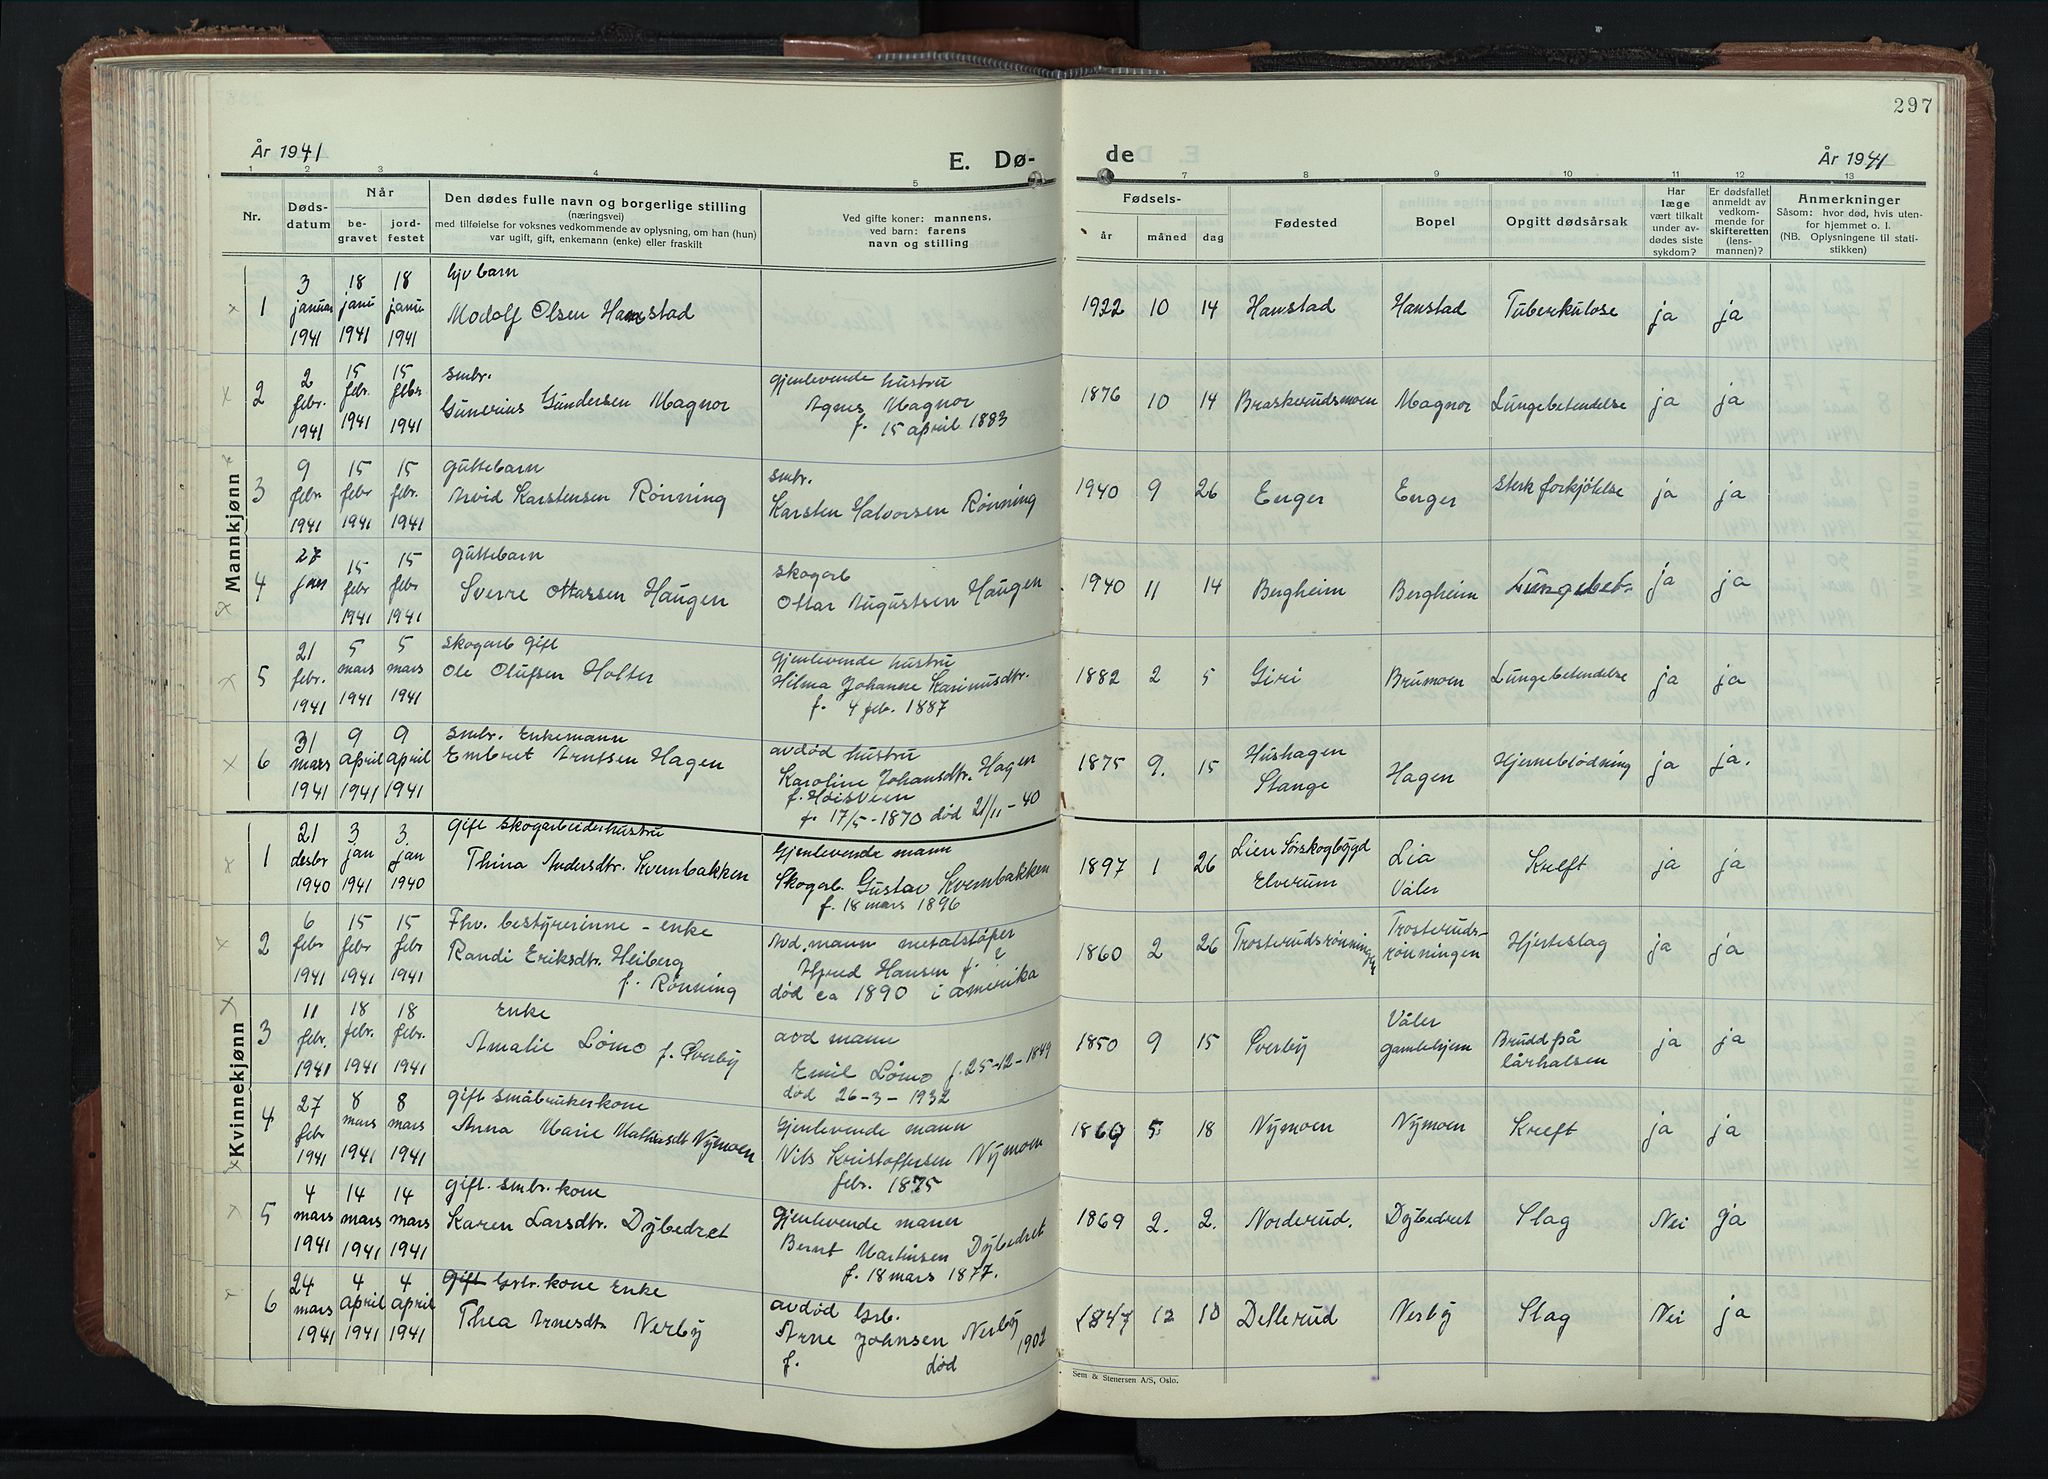 297
År 1941
E. Dø-
de
År 1941
1 2 3 4 5 7 8 9 10 11 12 13
Nr.
Døds-
datum
Når
be-
gravet
jord-
festet
Den dødes fulle navn og borgerlige stilling
(næringsvei)
med tilføielse for voksnes vedkommende av oplysning, om han (hun)
var ugift, gift, enkemann (enke) eller fraskilt
Ved gifte koner: mannens,
ved barn: farens
navn og stilling
Fødsels-
år
måned
dag
Fødested
Bopel
Opgitt dødsårsak
Har
læge
vært tilkalt
under av-
dødes siste
sykdom?
Er dødsfallet
anmeldt av
vedkom-
mende for
skifteretten
(lens-
mannen)?
Anmerkninger
Såsom: hvor død, hvis uten-
for hjemmet o. l.
(NB. Oplysningene til stati-
stikken)
Mannkjønn
1
3 januar 1941
18 janu 1941
18 janu 1941
Modolf Olsen Hanstad
1922 10 14 Hanstad Hanstad Tuberkulose ja ja
2
2 febr. 1941
15 febr. 1941
15 febr 1941
smbr.
Gunerius Gundersen Magnor
gjenlevende hustru
Agnes Magnor
f. 15 april 1883
1876 10 14 Braskerudsmoen Magnor Lungebetendelse ja ja
3
9 febr. 1941
15 febr 1941
15 febr. 1941
guttebarn
Arvid Karstensen Rønning
smbr.
Karsten Halvorsen Rønning
1940 9 26 Enger Enger sterk forkjølelse ja ja
4
27
15 febr 1941
15 febr. 1941
guttebarn
Sverre Ottarsen Haugen
skogarb
Ottar Augustsen Haugen
1940 11 14 Bergheim Bergheim Lungebet. ja ja
5
21 febr. 1941
5 mars 1941
5 mars 1941
skogarb gift
Ole Olufsen Holter
gjenlevende hustru
Hilma Johanne Karinusdtr.
f. 4 feb. 1887
1882 2 5 Giri Brumoen Lungebetendelse ja ja
6
31 mars 1941
9 april 1941
9 april 1941
smbr. Enkemann
Embret Arntsen Hagen
avdød hustru
Karoline Johansdtr. Hagen
f. Høisveen
f. 17/5-1870 død 21/11-40
1875 9. 15 Hushagen
Stange Hagen Hjerneblødning ja ja.
Kvinnekjønn
1
21 desbr 1940
3. jan 1941
3. jan 1940
Gift skogarbeiderhustru
Thina Andersdtr. Kvernbakken
Gjenlevende mann
Skogarb. Gustav Kvernbakken
f. 18 mars 1896
1897 1 26 Lien Sørskogbygd
Elverum Lia
Våler Kreft ja ja
2
6 febr 1941
15 febr 1941
15 febr 1941
Fhv. bestyrerinne - enke
Randi Eriksdtr. Heiberg
f. Rønning
Avd. mann metalstøper
Alfred Hansen f. ?
død ca 1890 i amerika
1860 2 26 Trosterudsrønningen Trosteruds-
rønningen Hjerteslag ja ja
3
11 febr. 1941
18 febr. 1941
18 febr. 1941
Enke
Amalie Lømo f. Øverby
avd mann
Emil Lømo f. 25-12-1849
død 26-3-1932
1850 9 15 Øverby Våler
gamlehjem Brudd på
lårhalsen ja ja
4
27 febr 1941
8 mars 1941
8 mars 1941
gift småbrukerkone
Anna Marie Mathisdt Nymoen
Gjenlevende mann
Nils Kristoffersen Nymoen
febr. 1875
1869 5. 18 Nymoen Nymoen Kreft ja ja
5
4 mars 1941
14 mars 1941
14 mars 1941
gift. smbr. kone
Karen Larsdtr. Dybedret
gjenlevende mann
Bernt Martinsen Dybedret
f. 18 mars 1877.
1869 2. 2. Norderud. Dybedret Slag Nei ja
6
24 mars 1941
4 april 1941
4 april 1941
Gift Gbr. kone Enke
Thea Arnesdt. Nerby
avdød Gbr.
Arne Johansen Nerby
f. død 1902
1847 12 10 Dellerud Nerby Slag Nei ja
Sem & Stenersen A/S, Oslo.